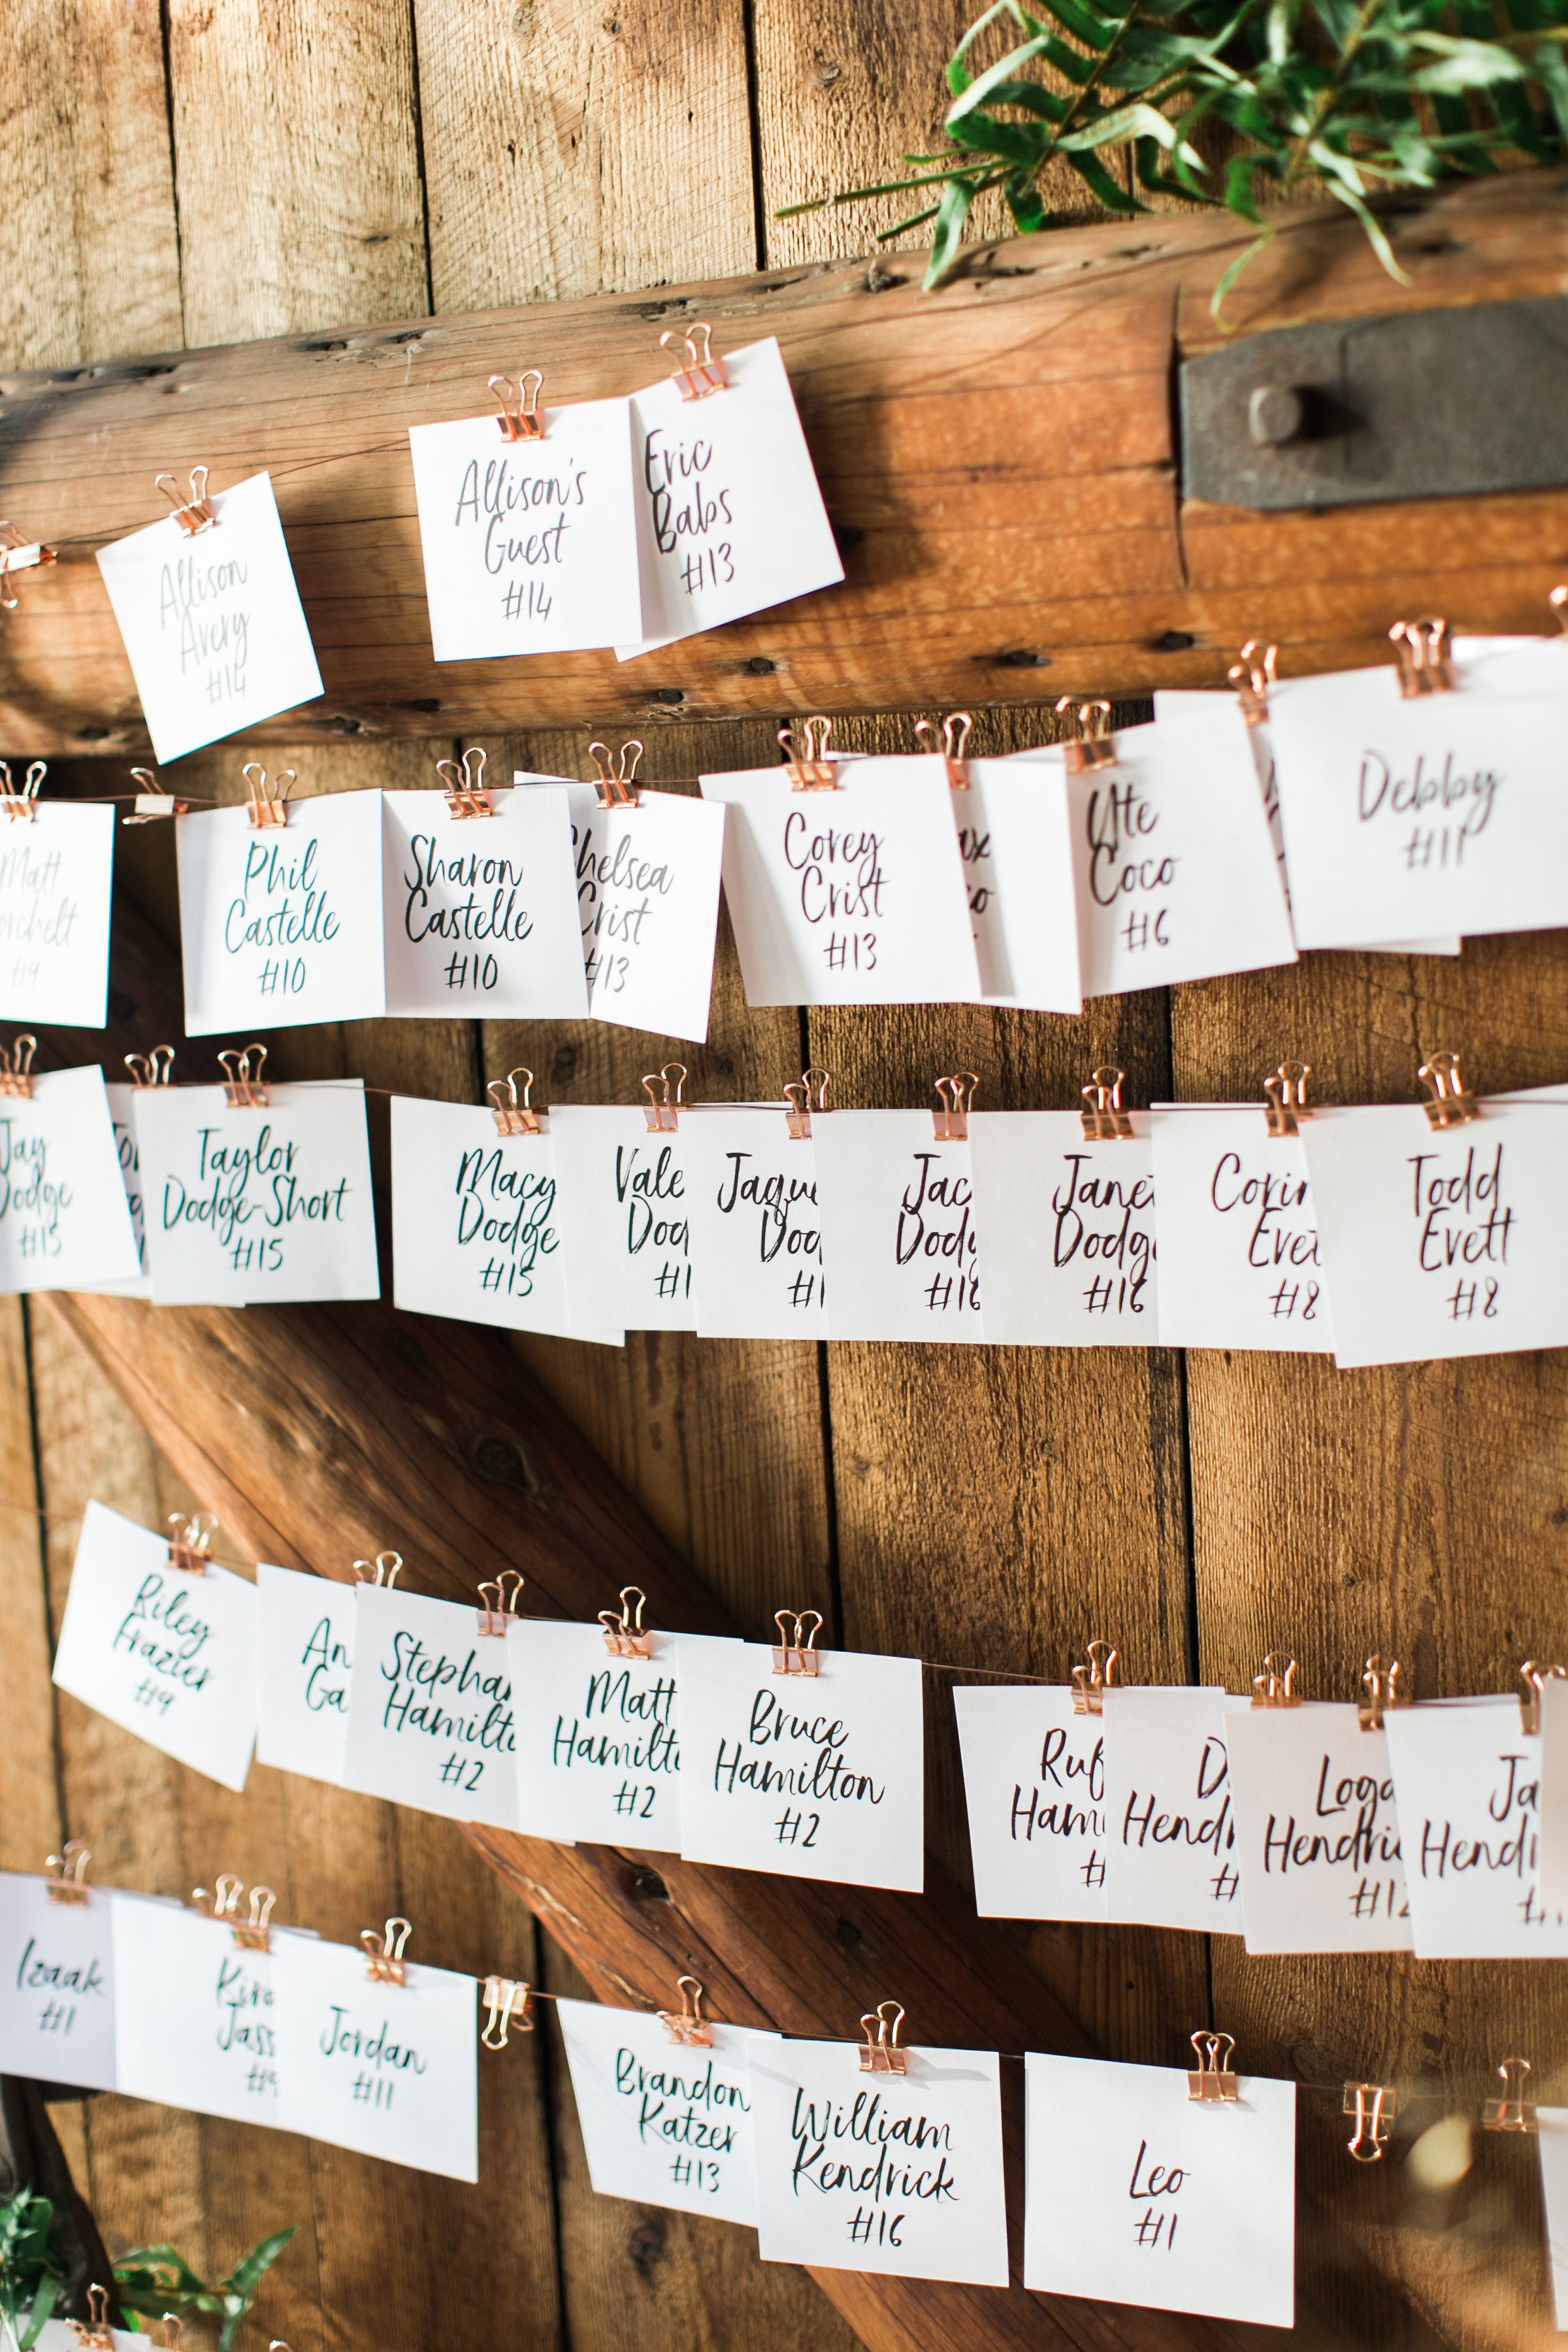 Allison
Avery
#14
Allison's
Guest
#14
Eric
Babs
#13
Matt
#9
Phil
Castelle
#10
Sharon
Castelle
#10
Chelsea
Crist
#13
Corey
Crist
#13
Ute
Coco
#6
Debby
#11
Jay
Dodge
#15
Taylor
Dodge-Short
#15
Macy
Dodge
#15
Vale
Dod
#1
Jaque
Dod
#1
Jac
Dodg
#16
Jane
Dodg
#16
Corin
Evet
#8
Todd
Evett
#8
Riley
Frazier
#9
An
Ga
Stephan
Hamilto
#2
Matt
Hamilto
#2
Bruce
Hamilton
#2
Ruf
Hami
#
D
Hendr
#
Loga
Hendric
#12
Ja
Hendr
Izaak
#1
Kira
Jass
#9
Jordan
#11
Brandon
Katzer
#13
William
Kendrick
#16
Leo
#1